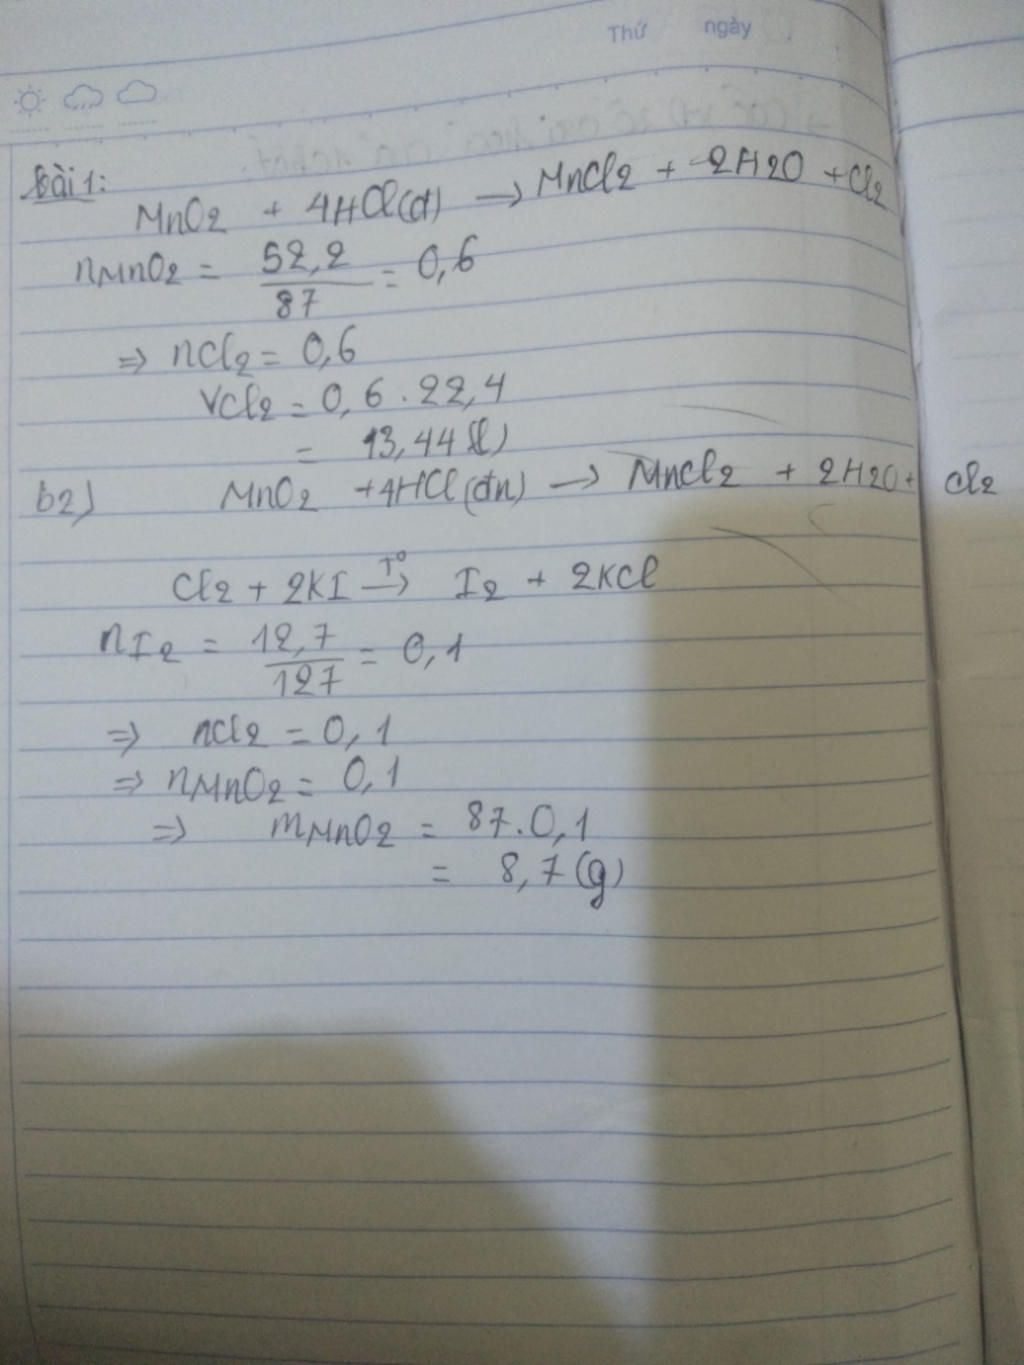 Thứ ngày
Bài 1:
MnO2 + 4HCl(đ) → MnCl2 + 2H2O + Cl2
nMnO2 = 52,2 / 87 = 0,6
⇒ nCl2 = 0,6
VCl2 = 0,6 . 22,4
= 13,44 (l)
b2) MnO2 + 4HCl (đn) → MnCl2 + 2H2O + Cl2
Cl2 + 2KI T° → I2 + 2KCl
nI2 = 12,7 / 127 = 0,1
⇒ nCl2 = 0,1
⇒ nMnO2 = 0,1
⇒ mMnO2 = 87.0,1
= 8,7 (g)